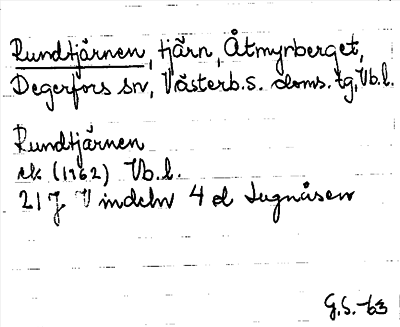 Rundtjärnen, tjärn, Åtmyrberget,
Degerfors sn, Västerb.s. doms. tg, Vb.l.
Rundtjärnen
ek (1962) Vb.l.
21 J Vindeln 4 d Lugnåsen
G.S. -63